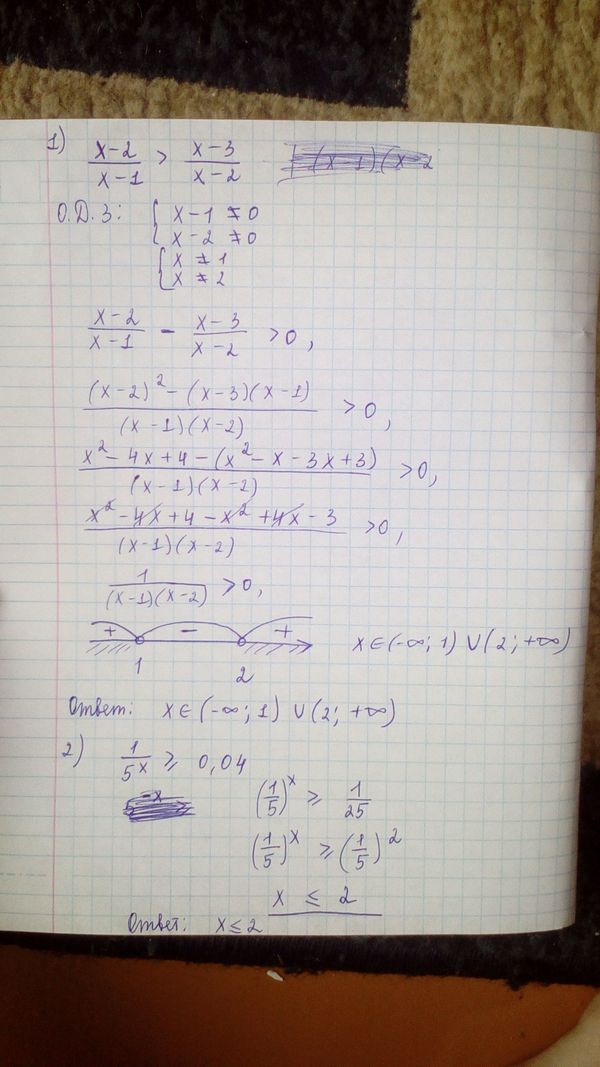 1) (x-2)/(x-1) > (x-3)/(x-2) (x-1)(x-2
О.Д.З: { x-1 ≠ 0
{ x-2 ≠ 0
{ x ≠ 1
{ x ≠ 2
(x-2)/(x-1) - (x-3)/(x-2) > 0,
((x-2)² - (x-3)(x-1))/((x-1)(x-2)) > 0,
(x² - 4x + 4 - (x² - x - 3x + 3))/((x-1)(x-2)) > 0,
(x² - 4x + 4 - x² + 4x - 3)/((x-1)(x-2)) > 0,
1/((x-1)(x-2)) > 0,
+ - +
1 2
x ∈ (-∞; 1) ∪ (2; +∞)
Ответ: x ∈ (-∞; 1) ∪ (2; +∞)
2) 1/5ˣ ≥ 0,04
(1/5)ˣ ≥ 1/25
(1/5)ˣ ≥ (1/5)²
x ≤ 2
Ответ: x ≤ 2